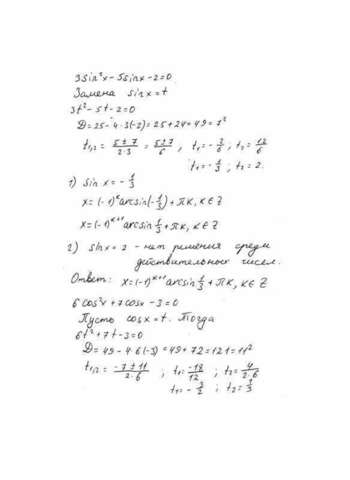 3sin²x - 5sinx - 2 = 0
Замена sinx = t
3t² - 5t - 2 = 0
D = 25 - 4·3(-2) = 25 + 24 = 49 = 7²
t₁,₂ = (5 ± 7)/(2·3) = (5 ± 7)/6 , t₁ = -2/6 ; t₂ = 12/6
t₁ = -1/3 ; t₂ = 2.
1) sin x = -1/3
x = (-1)ᵏ arcsin(-1/3) + πк, к ∈ Z
x = (-1)ᵏ⁺¹ arcsin 1/3 + πк, к ∈ Z
2) sinx = 2 - нет решения среди
действительных чисел.
Ответ: x = (-1)ᵏ⁺¹ arcsin 1/3 + πк, к ∈ Z
6cos²x + 7cosx - 3 = 0
Пусть cosx = t. Тогда
6t² + 7t - 3 = 0
D = 49 - 4·6(-3) = 49 + 72 = 121 = 11²
t₁,₂ = (-7 ± 11)/(2·6) ; t₁ = -18/12 ; t₂ = 4/(2·6)
t₁ = -3/2 ; t₂ = 1/3